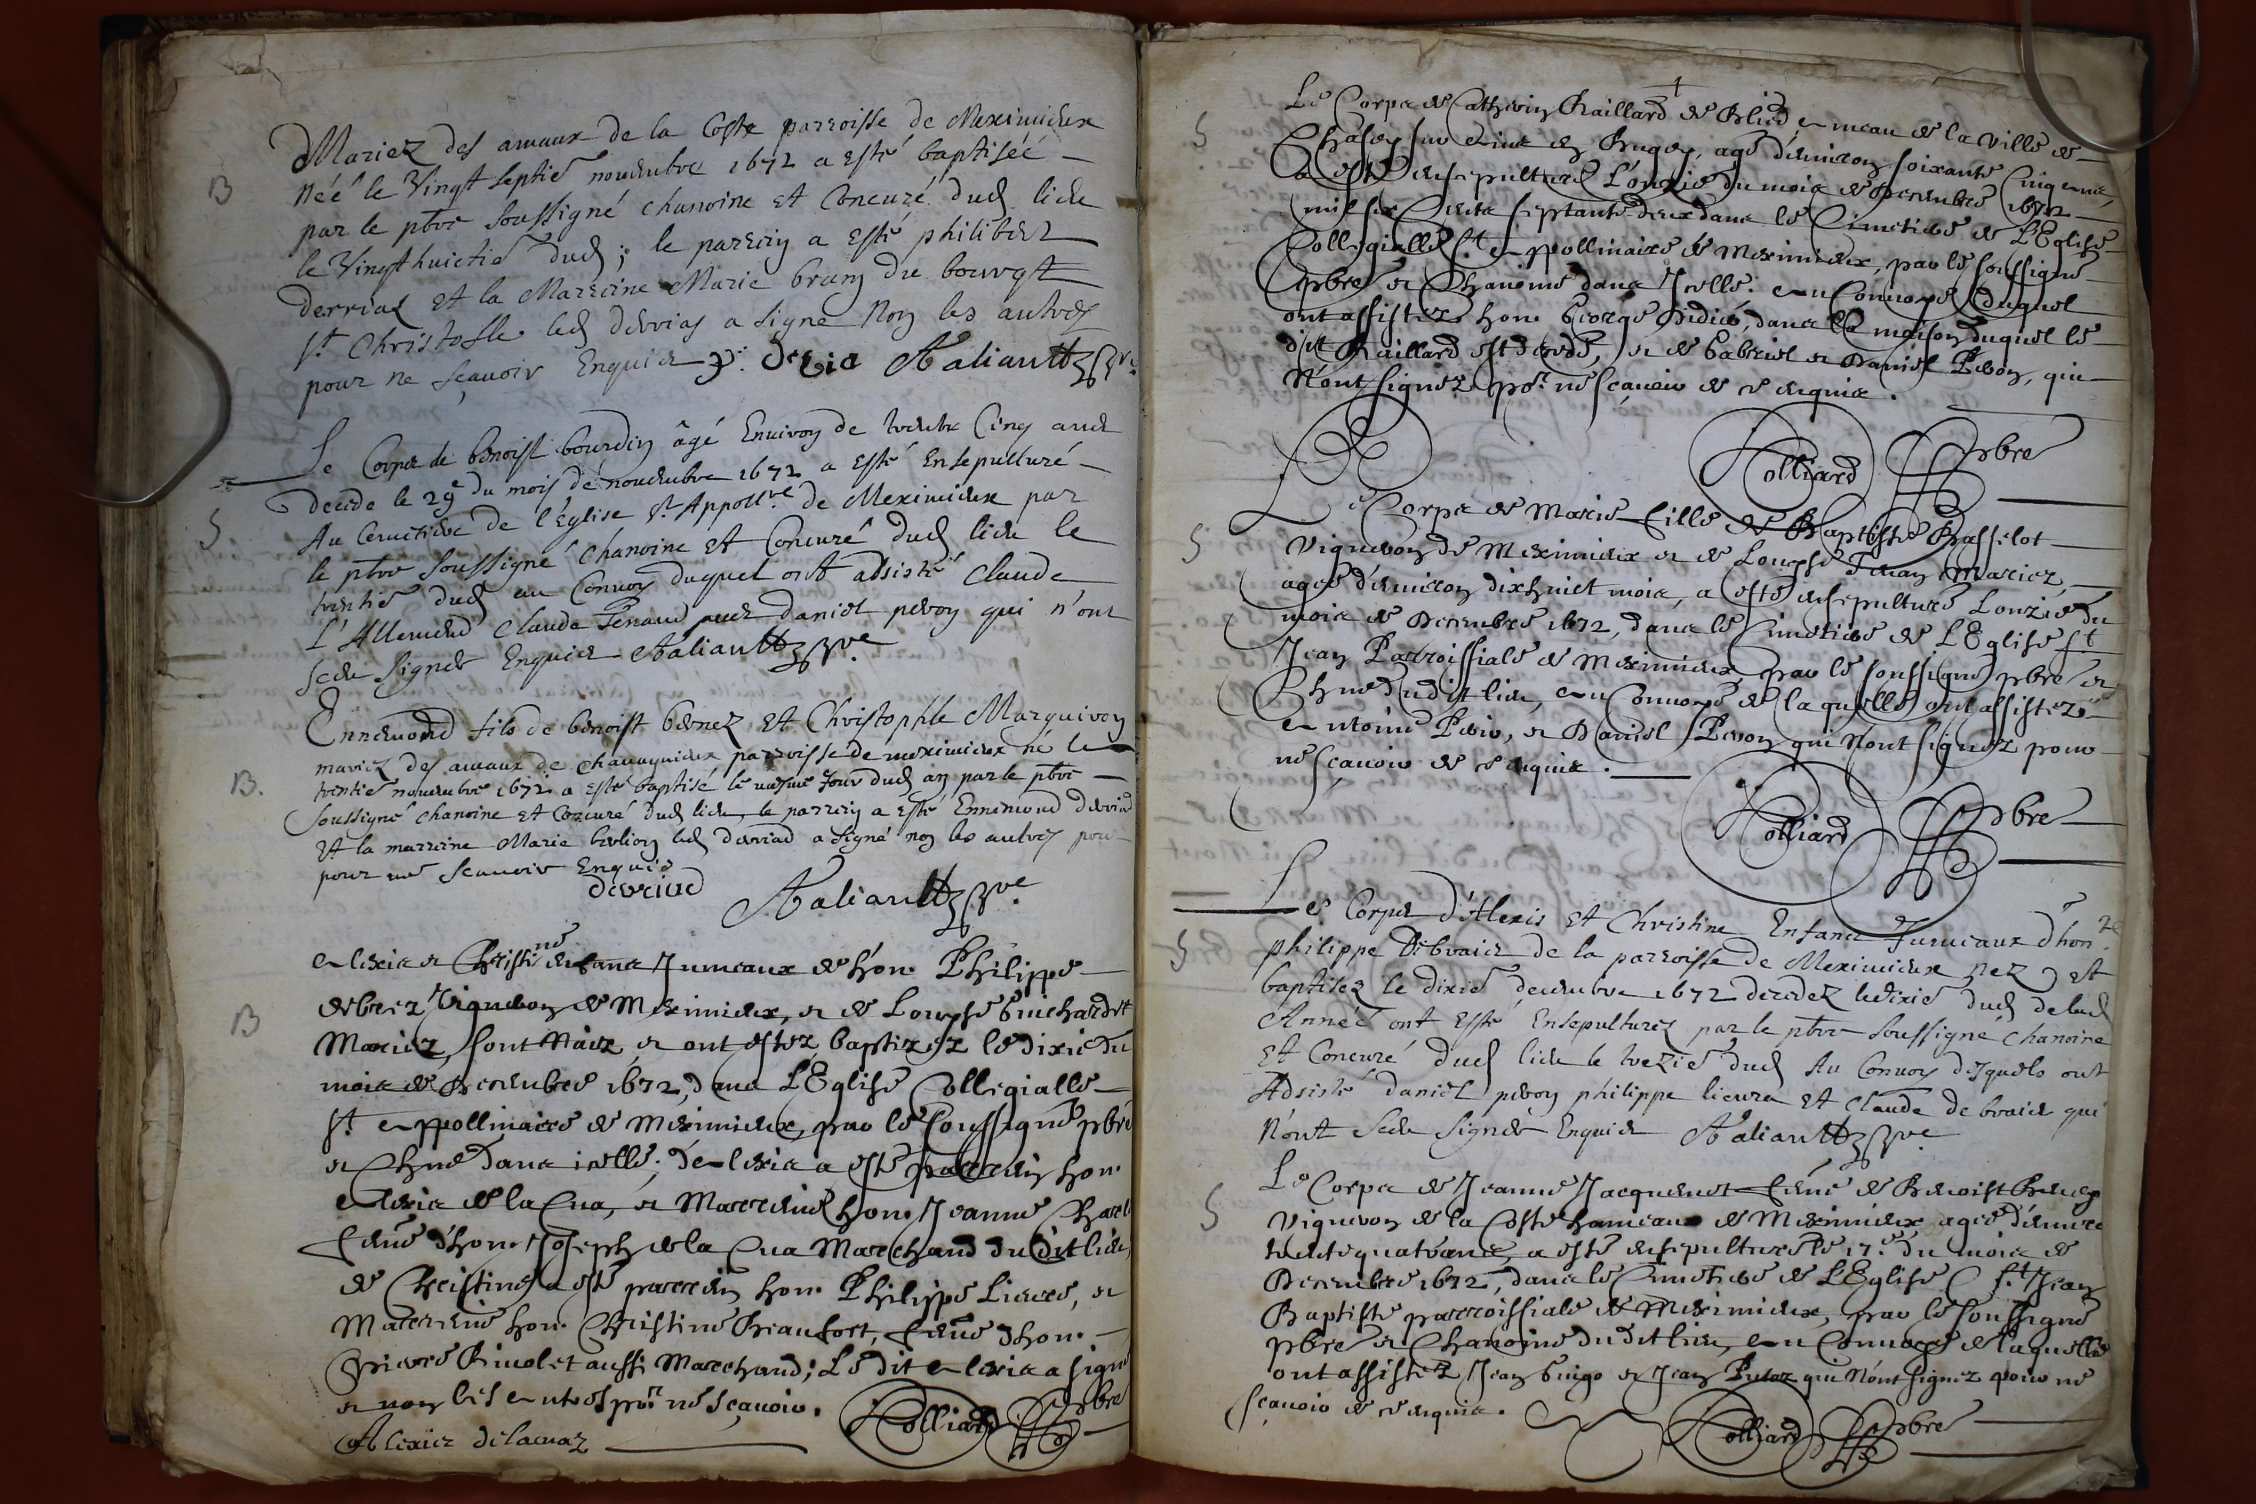 Mariez des amaux de la Coste parroisse de Meximieux
B
Néé le Vingt septie novembre 1672 a esté baptiséé
par le pbre soussigné chanoine et Concuré dud lieu
le Vingt huictie dud; le parrein a esté philibert
derrias et la Marreine Marie brun du bourgt
st Christofle led derrias a signe Non les autres
pour ne sçavoir Enquis
Le Corps de benoist bourdin âgé Environ de trente Cinq ans
decede le 29e du mois de novembre 1672 a esté Ensepulturé
S
Au Cemetiere de l'Eglise St Appollre de Meximieux par
le pbre soussigné Chanoine et Concuré dud lieu le
trentie dud au Convoy duquel ont adsisté Claude
Claude Penaud daniel peron qui n'ont
sceu signer Enquis
Ennemond fils de benoist et Christophle Marquivon
mariez des amaux de parroisse de meximieux né le
B.
trentie novembre 1672 a esté baptisé le mesme Jour dud an par le pbre
soussigné chanoine et Concuré dud lieu, le parrein a esté Ennemond derriad
et la marreine Marie led derriad a signé non les autres pour
pour ne sçavoir Enquis
derriad
Alexis et Christine enfans Jumeaux de hon. Philippe
Vigneron de Meximieux, et de Louyse Guichardet
B
Mariez, sont Náiz et ont estez baptizez le dixie du
mois de Decembre 1672, dans L'Eglise Collegialle
st Appollinaire de Meximieux, par le soussigné pbre
et Chne dans icelle; d'Alexis a esté parrein hon.
Alexis de la Cua, et Marreine hon. Jeanne
feme d'hon. Joseph de la Cua Marchand dudit lieu,
de Christine a esté parrein hon. Philippe Lievre, et
Marreine hon. Christine Beaufort, feme d'hon.
Pierre Rivolet aussi Marchand; Le dit Alexis a signé
et non les Autres pr ne sçavoir. Rolliard pbre
Alexiez delacuaz
Le Corps de Catherin Raillard de Blied Ameau de la Ville de
S
sur en Bugey, agé d'environ soixante Cinq ans,
a esté ensepulturé L'onzie du mois de Decembre 1672
mil six Cents septante deux dans le Cimetiere de L'Eglise
Collegialle st Appollinaire de Meximieux, par le soussigné
pbre et Chanoine dans Icelle: au Convoye duquel
ont assistez hon. George Didier, dans la maison duquel le
dit Raillard est decedé, et de Gabriel et Daniel Peron, qui
N'ont signez pr ne sçavoir de ce enquis.
Rolliard pbre
Le Corps de Marie fille de Baptiste Basselot
S
Vigneron de Meximieux et de Louyse Mariez,
agée d'environ dixhuict mois, a esté ensepulturé Lonzie du
mois de Decembre 1672, dans le Cimetiere de L'Eglise st
Jean Parroissiale de Meximieux, par le soussigné pbre et
Chne dudit lieu, au Convoye de laquelle ont assistez
Antoine et Daniel Peron qui N'ont signez pour
ne sçavoir de ce enquis.
Rolliard pbre
Le Corps d'Alexis et Christine Enfans Jumeaux d'hon.
S
philippe de la parroisse de Meximieux nez et
baptisez le dixie decembre 1672 decedez ledixie dud delad
Année ont esté Ensepulturez par le pbre soussigné Chanoine
et Concuré dud lieu le trezie dud Au Convoy desquels ont
Adsisté daniel peron philippe lieure et Claude qui
N'ont sceu signer Enquis
Le Corps de Jeanne Jacquemet feme de Benoist
S
Vigneron de la Coste hameau de Meximieux agée d'environ
trentequatreans, a esté ensepulture le 17.e du mois de
Decembre 1672, dans le Cimetiere de L'Eglise st Jean
Baptiste parroissiale de Meximieux, par le soussigné
pbre et Chanoine dudit lieu, au Convoye de laquelle
ont assistez Jean et Jean qui N'ont signez pour ne
sçavoir de ce enquis.
Rolliard pbre